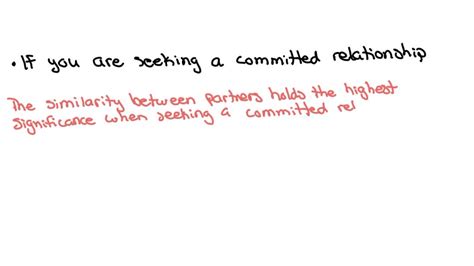 • If you are seeking a committed relationship,
The similarity between partners holds the highest
significance when seeking a committed rel